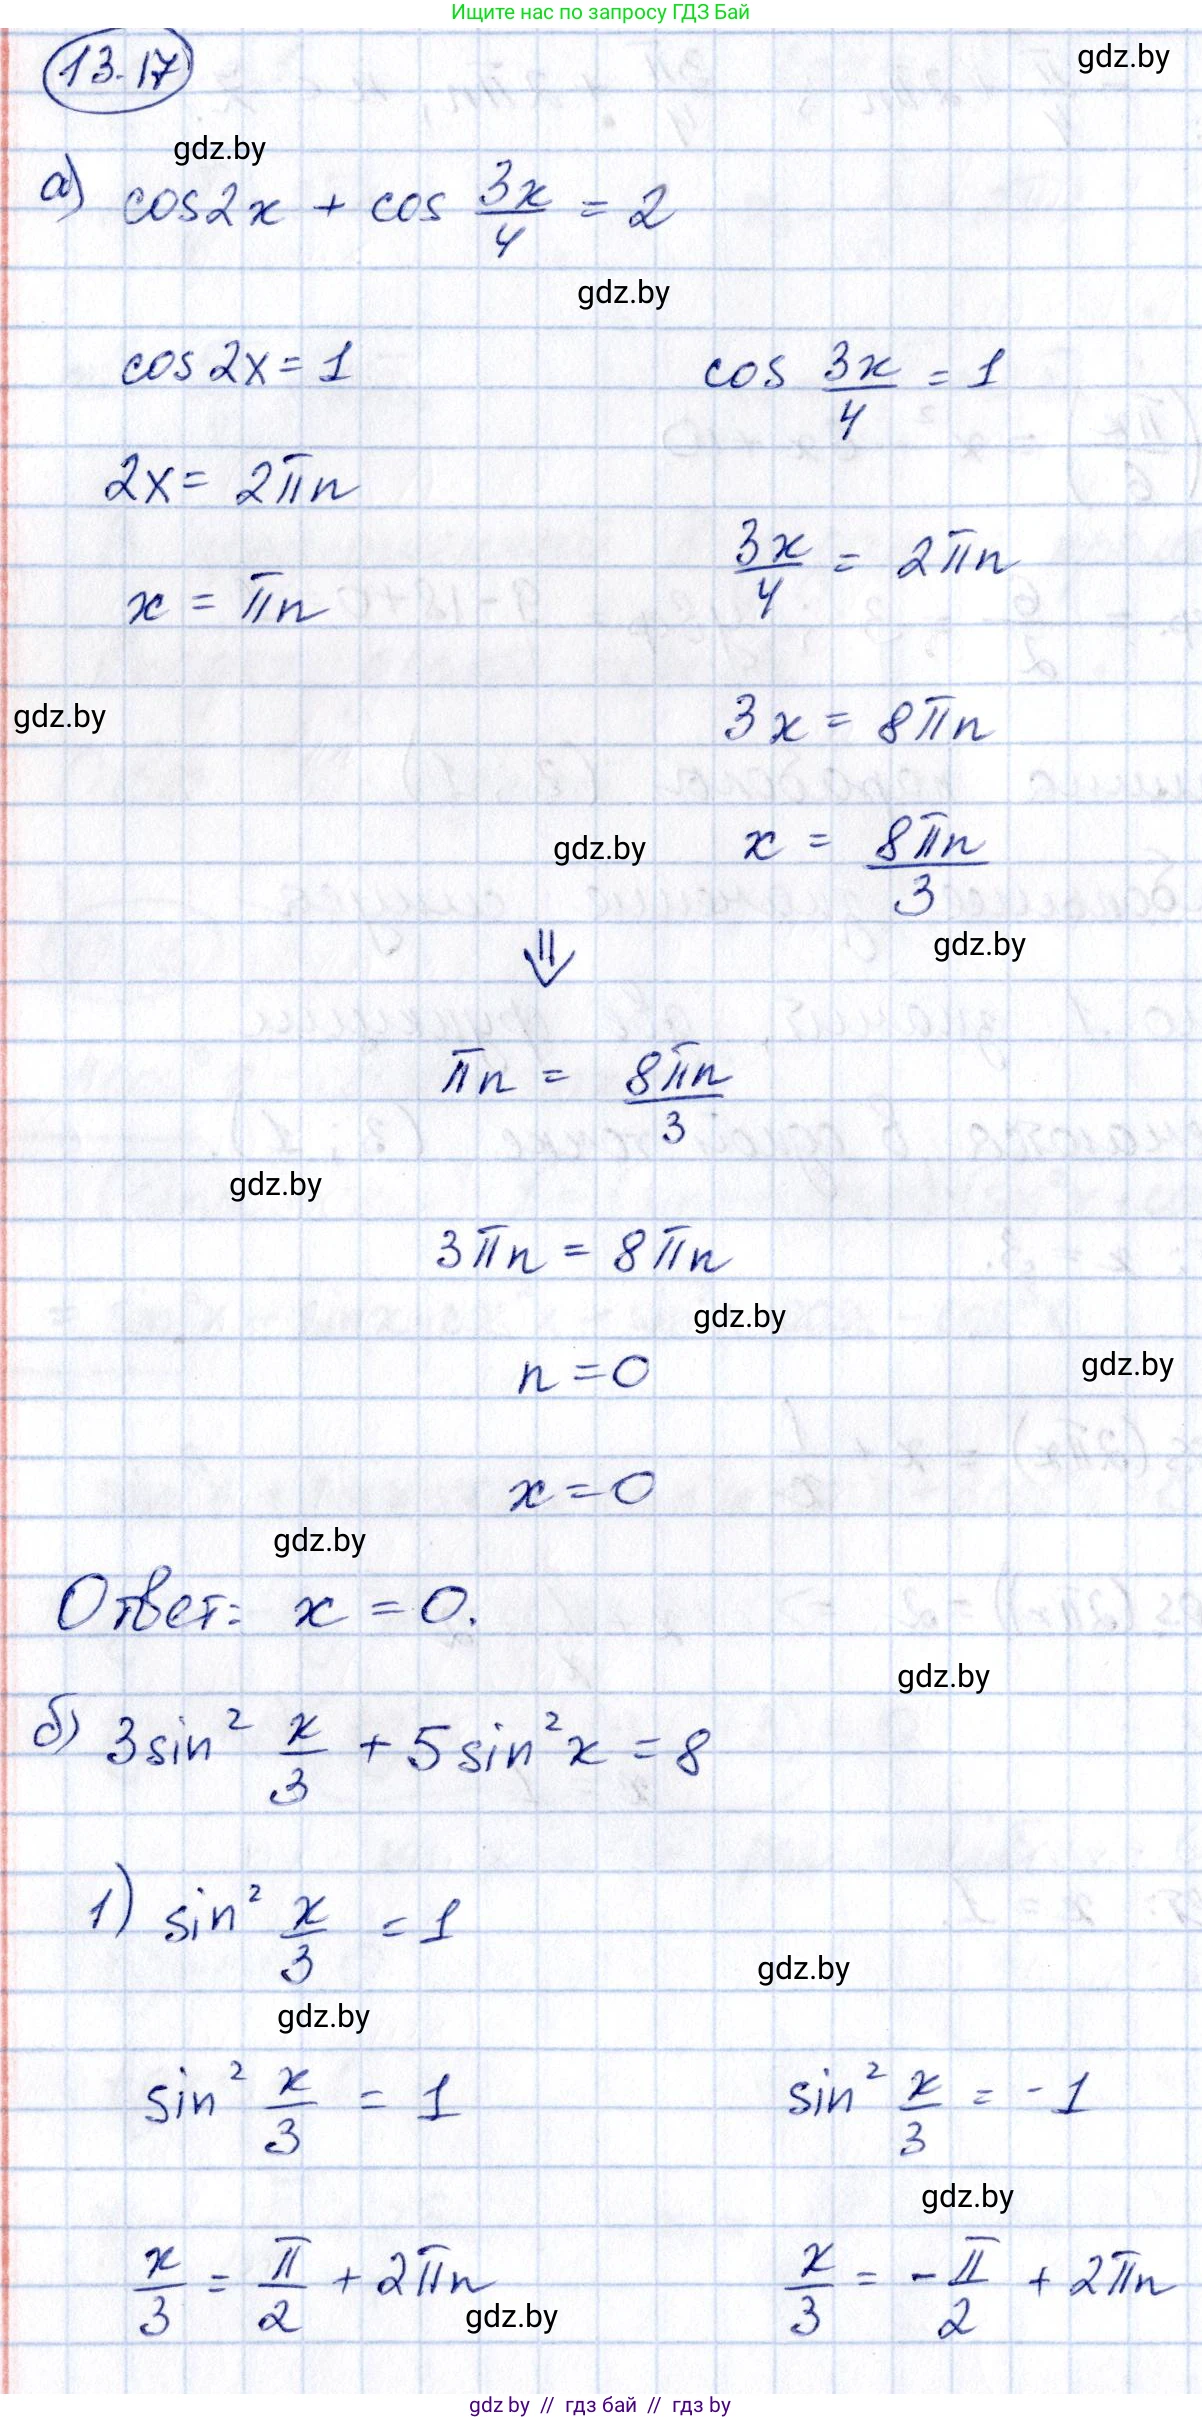 Ищите нас по запросу ГДЗ Бай
13.17
gdz.by
gdz.by
а) cos2x + cos 3x/4 = 2
gdz.by
cos 2x = 1 cos 3x/4 = 1
2x = 2πn
3x/4 = 2πn
x = πn
gdz.by 3x = 8πn
gdz.by x = 8πn/3
gdz.by
⇓
πn = 8πn/3
gdz.by
3πn = 8πn
gdz.by
n = 0 gdz.by
x = 0
gdz.by
Ответ: x = 0.
gdz.by
б) 3sin² x/3 + 5sin²x = 8
1) sin² x/3 = 1
gdz.by
gdz.by
sin² x/3 = 1 sin² x/3 = -1
gdz.by
x/3 = π/2 + 2πn x/3 = -π/2 + 2πn
gdz.by
gdz by // гдз бай // гдз by